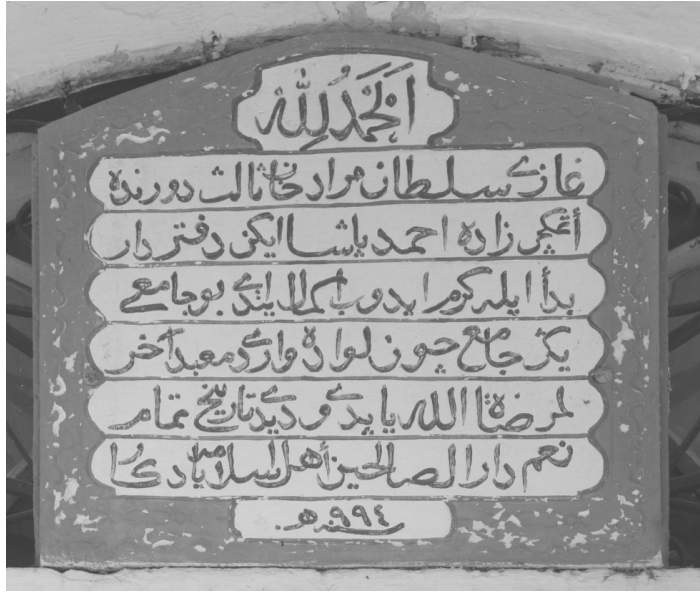 الحمد لله
غازي سلطان مراد خان ثالث دورنده
أتمكجي زاده احمد پاشا ايكن دفتردار
بدأ ايله كرم ايدوب اكمال ايتدي بو جامعي
يكر جامع چون لواده واردي معبد آخر
لمرضاة الله ياپدي ودي تاريخ تمام
نعم دار الصالحين أهل السلام
سنه ٩٩٤هـ